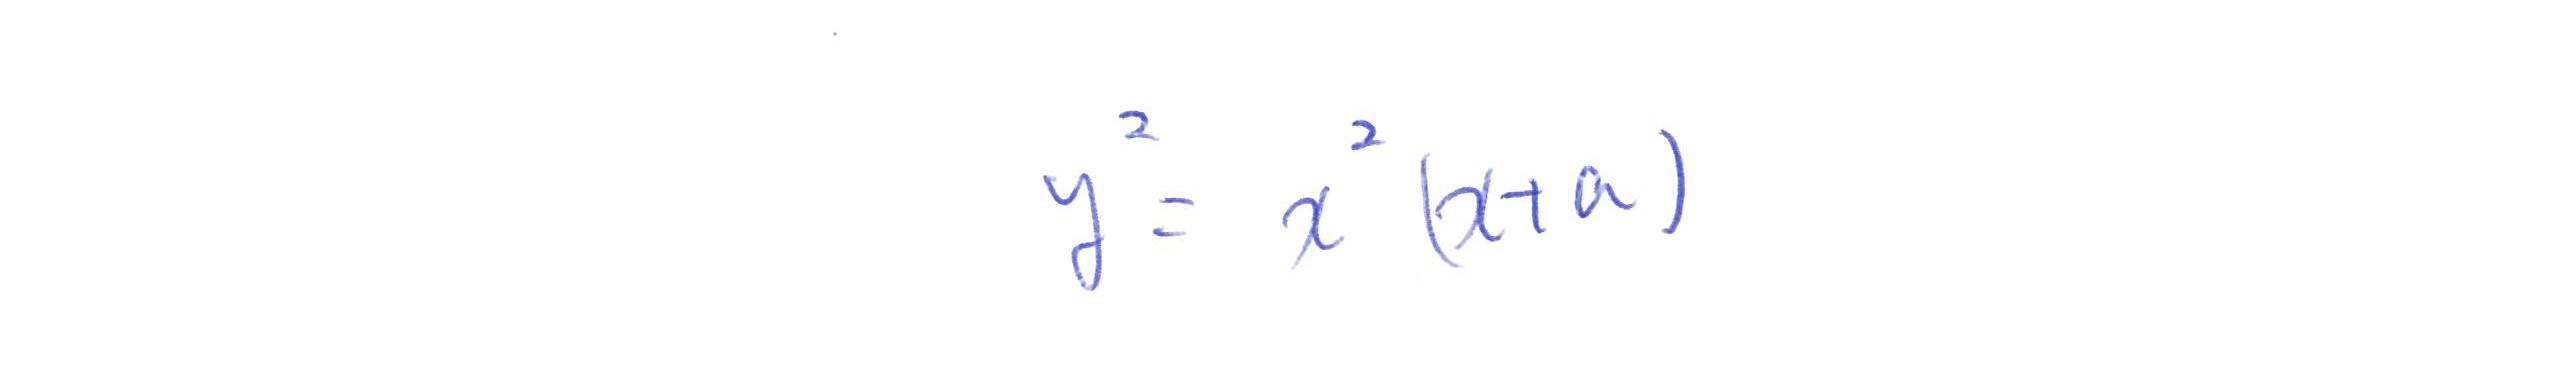 y² = x² (x+a)